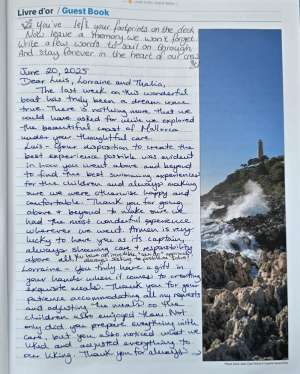 Livre d'or / Guest Book
You've left your footprints on the deck
Now leave a memory we won't forget
Write a few words to sail on through
And stay forever in the heart of our crew
June 20, 2025
Dear Luis, Lorraine and Thalia,
The last week on this wonderful
boat has truly been a dream come
true. There is nothing more that we
could have asked for while we explored
the beautiful coast of Mallorca
under your thoughtful care.
Luis - Your disposition to create the
best experience possible was evident
in how you went above and beyond
to find the best swimming experiences
for the children and always making
sure we were otherwise happy and
comfortable. Thank you for going
above + beyond to make sure we
had the most wonderful experience
wherever we went. Armen is very
lucky to have you as its captain,
always showing care + responsibility
above all.
Lorraine - You truly have a gift in
your hands when it comes to creating
exquisite meals. Thank you for your
patience accommodating all my requests
and adjusting the meals so the
children also enjoyed them. Not
only did you prepare everything with
care, but you also noticed what we
liked and adjusted everything to
our liking. Thank you for always